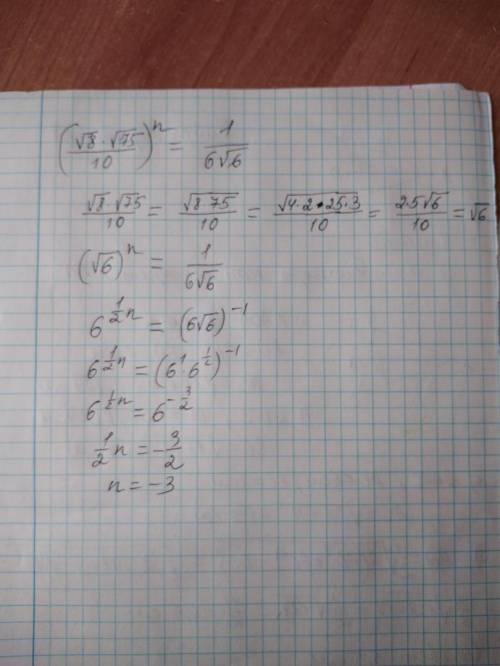 (√8 · √75 / 10)ⁿ = 1 / 6√6
√8 · √75 / 10 = √8 75 / 10 = √4·2·25·3 / 10 = 2·5√6 / 10 = √6
(√6)ⁿ = 1 / 6√6
6^(1/2 n) = (6√6)⁻¹
6^(1/2 n) = (6¹·6^(1/2))⁻¹
6^(1/2 n) = 6^(-3/2)
1/2 n = -3/2
n = -3